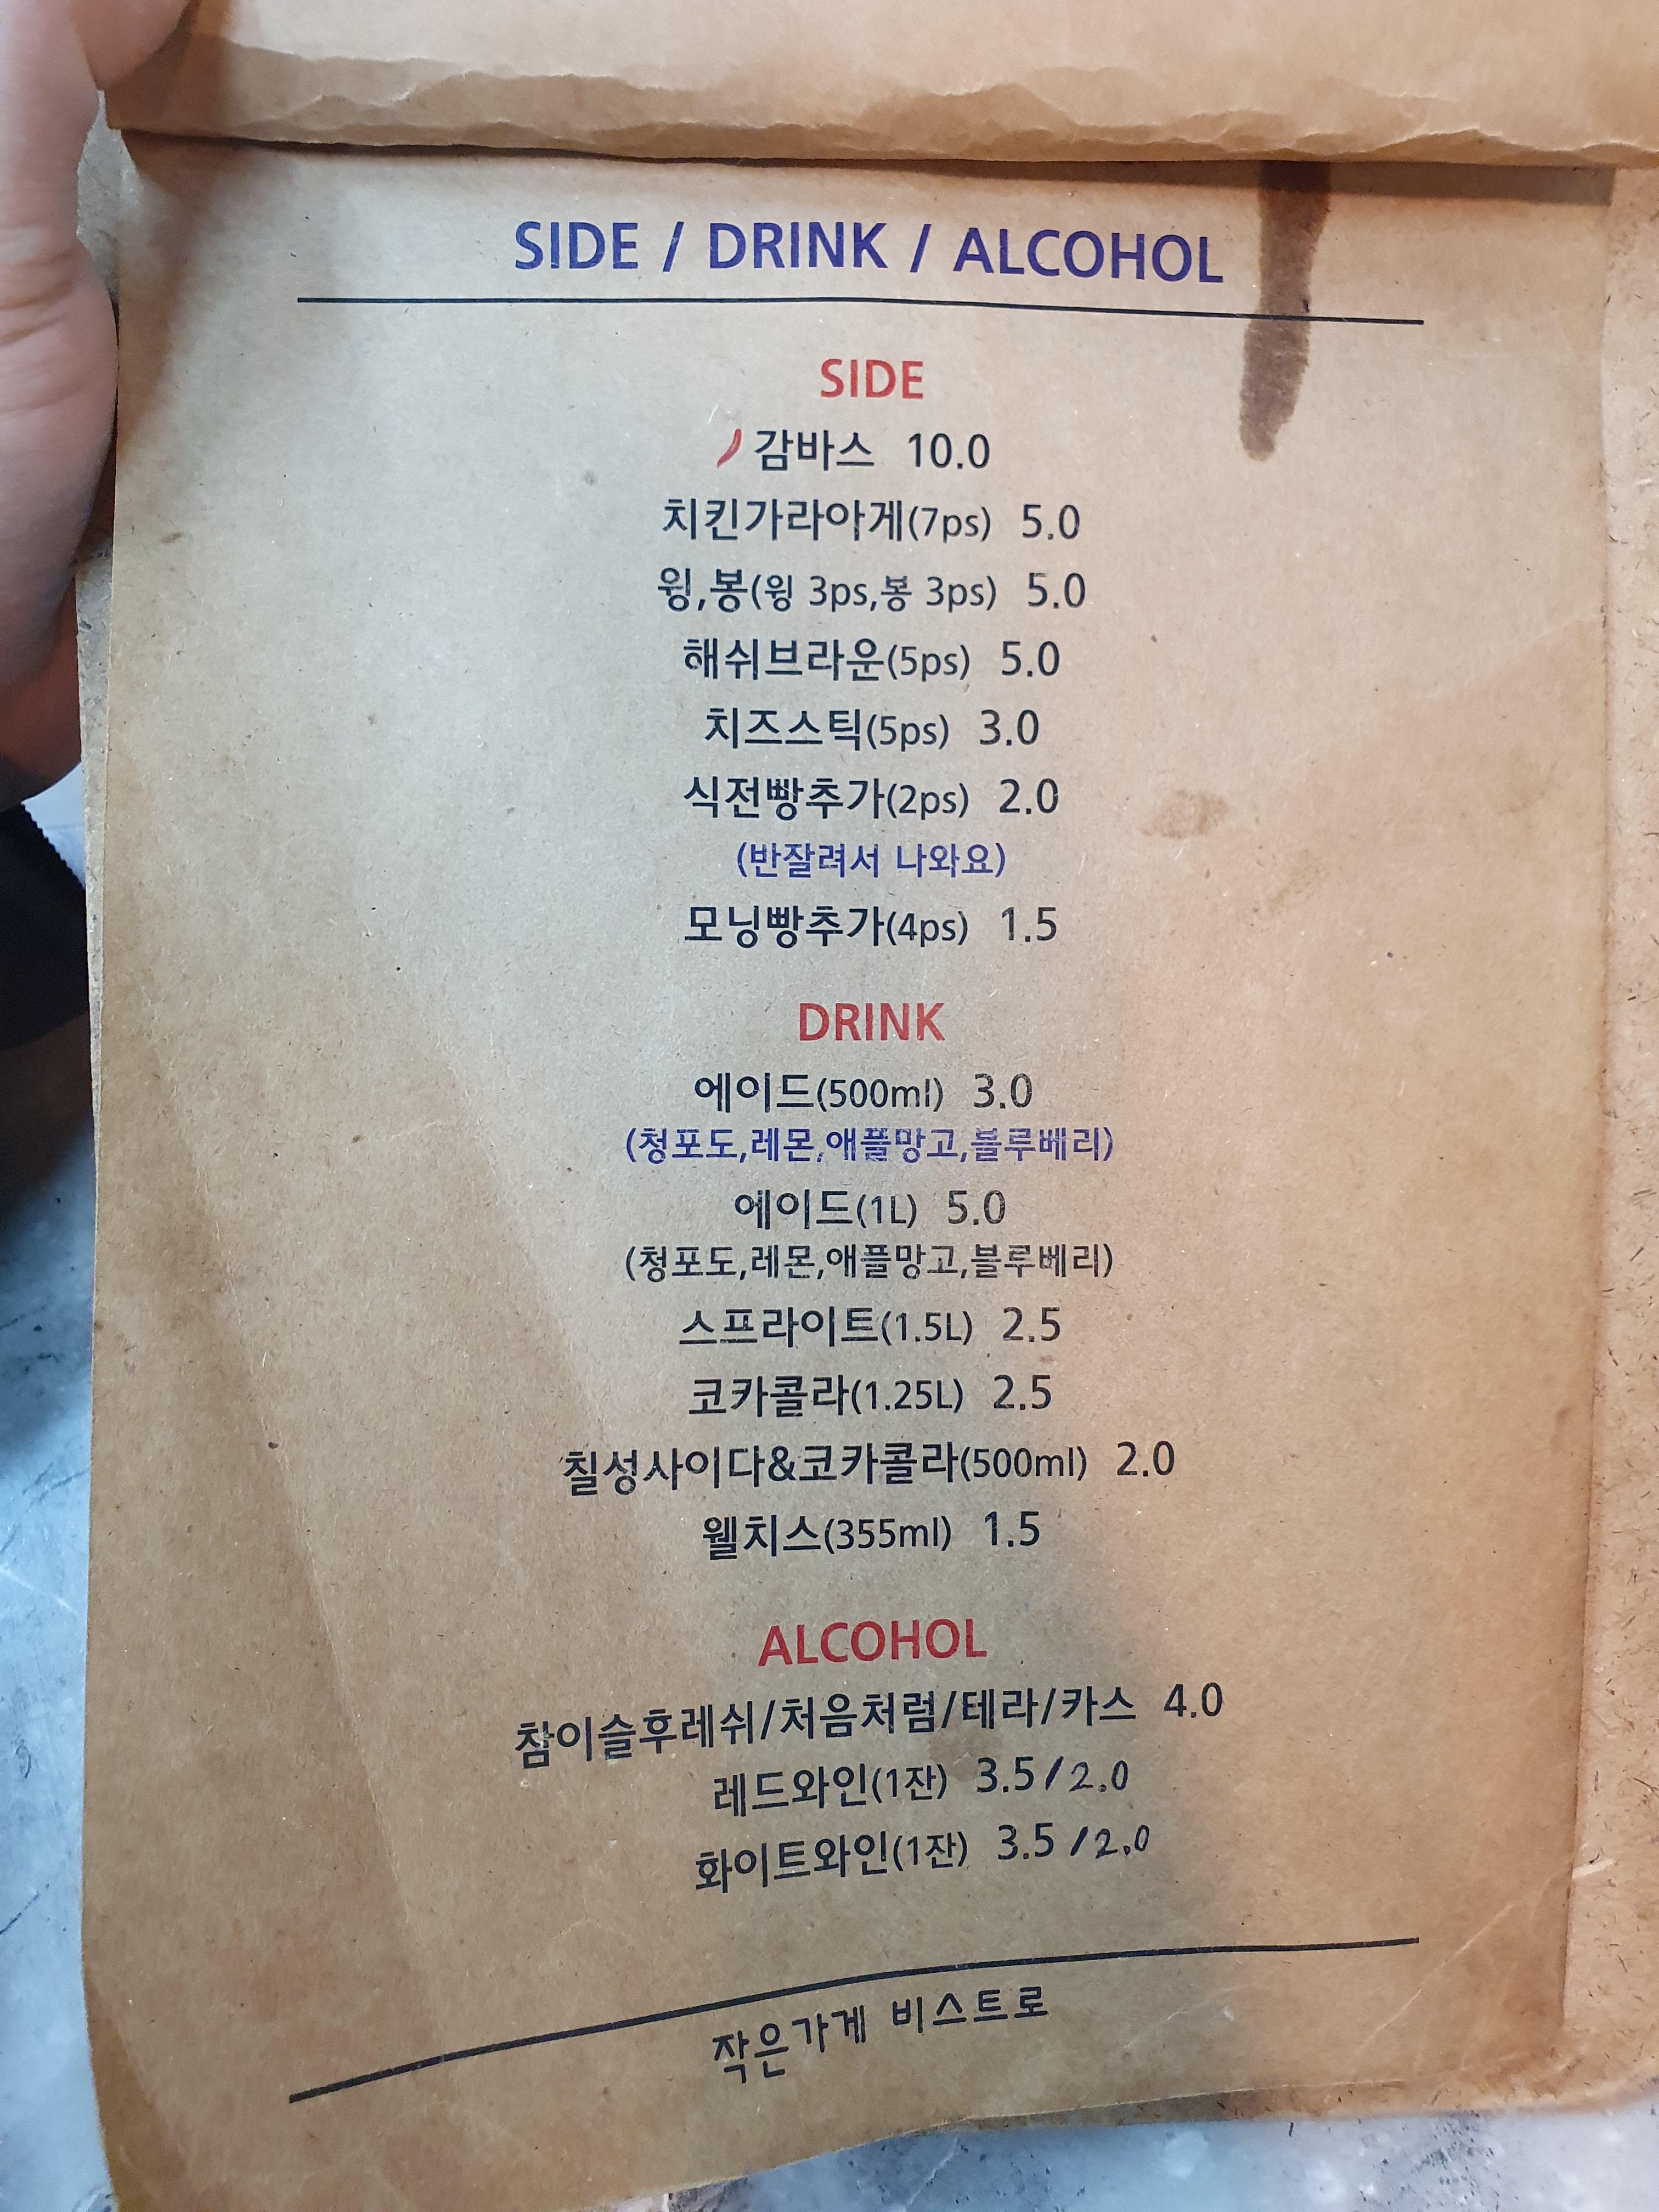 SIDE / DRINK / ALCOHOL
SIDE
감바스 10.0
치킨가라아게(7ps) 5.0
윙,봉(윙 3ps,봉 3ps) 5.0
해쉬브라운(5ps) 5.0
치즈스틱(5ps) 3.0
식전빵추가(2ps) 2.0
(반잘려서 나와요)
모닝빵추가(4ps) 1.5
DRINK
에이드(500ml) 3.0
(청포도,레몬,애플망고,블루베리)
에이드(1L) 5.0
(청포도,레몬,애플망고,블루베리)
스프라이트(1.5L) 2.5
코카콜라(1.25L) 2.5
칠성사이다&코카콜라(500ml) 2.0
웰치스(355ml) 1.5
ALCOHOL
참이슬후레쉬/처음처럼/테라/카스 4.0
레드와인(1잔) 3.5/2.0
화이트와인(1잔) 3.5/2.0
작은가게 비스트로